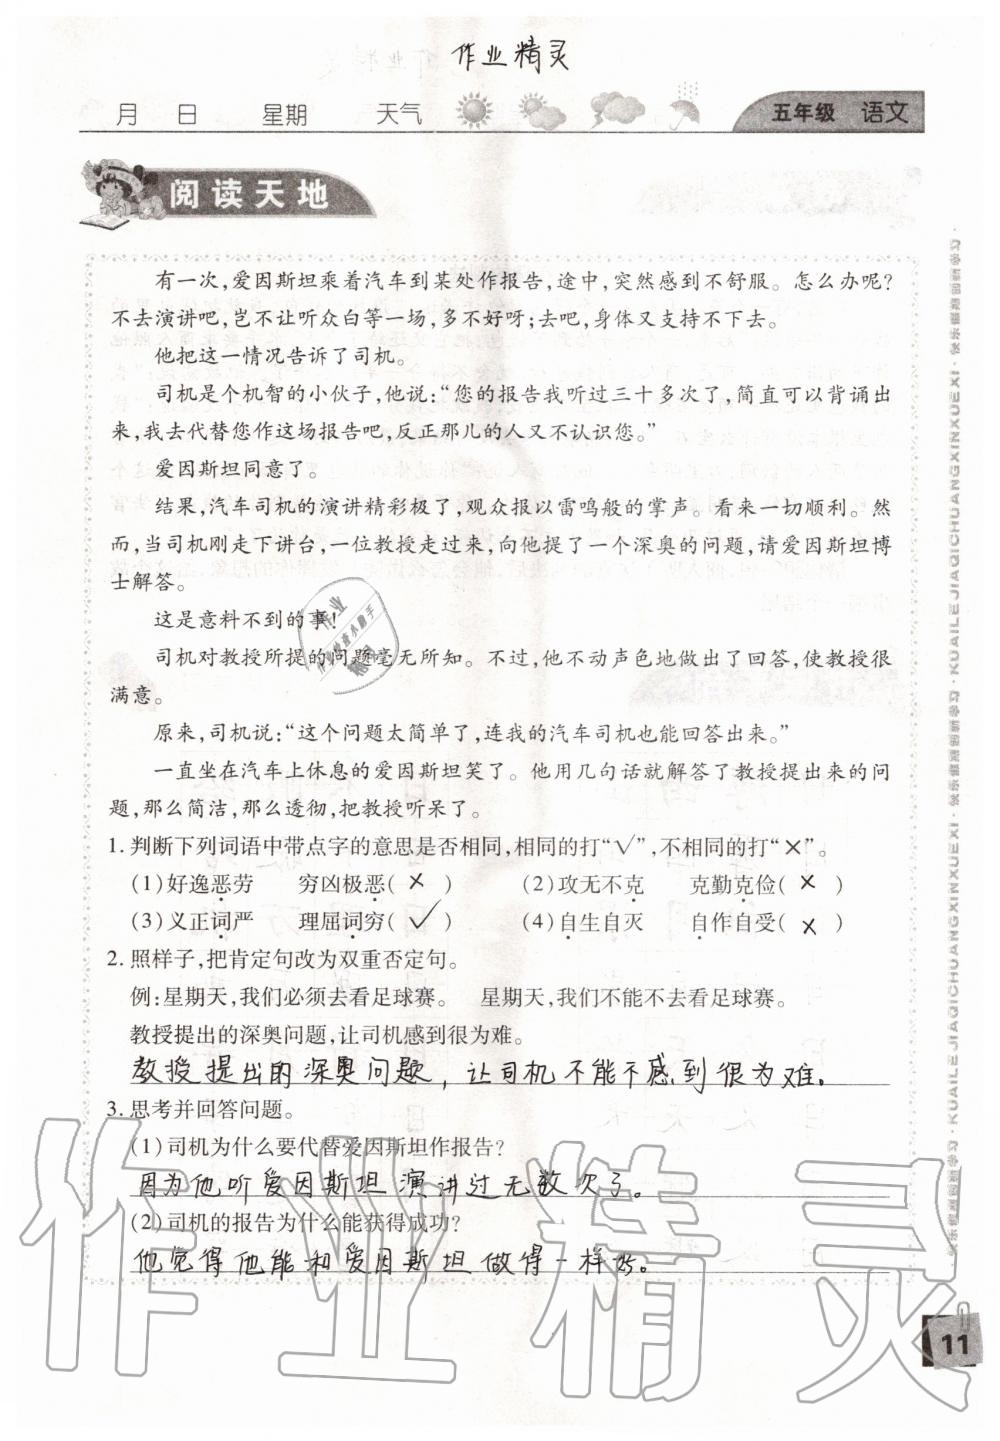 作业精灵
月 日 星期 天气 五年级 语文
阅读天地
有一次,爱因斯坦乘着汽车到某处作报告,途中,突然感到不舒服。怎么办呢?
不去演讲吧,岂不让听众白等一场,多不好呀;去吧,身体又支持不下去。
他把这一情况告诉了司机。
司机是个机智的小伙子,他说:“您的报告我听过三十多次了,简直可以背诵出
来,我去代替您作这场报告吧,反正那儿的人又不认识您。”
爱因斯坦同意了。
结果,汽车司机的演讲精彩极了,观众报以雷鸣般的掌声。看来一切顺利。然
而,当司机刚走下讲台,一位教授走过来,向他提了一个深奥的问题,请爱因斯坦博
士解答。
这是意料不到的事!
司机对教授所提的问题毫无所知。不过,他不动声色地做出了回答,使教授很
满意。
原来,司机说:“这个问题太简单了,连我的汽车司机也能回答出来。”
一直坐在汽车上休息的爱因斯坦笑了。他用几句话就解答了教授提出来的问
题,那么简洁,那么透彻,把教授听呆了。
1. 判断下列词语中带点字的意思是否相同,相同的打“√”,不相同的打“×”。
(1)好逸恶劳 穷凶极恶( × ) (2)攻无不克 克勤克俭( × )
(3)义正词严 理屈词穷( √ ) (4)自生自灭 自作自受( × )
2. 照样子,把肯定句改为双重否定句。
例:星期天,我们必须去看足球赛。 星期天,我们不能不去看足球赛。
教授提出的深奥问题,让司机感到很为难。
教授提出的深奥问题,让司机不能不感到很为难。
3. 思考并回答问题。
(1)司机为什么要代替爱因斯坦作报告?
因为他听爱因斯坦演讲过无数次了。
(2)司机的报告为什么能获得成功?
他觉得他能和爱因斯坦做得一样好。
11
作业精灵